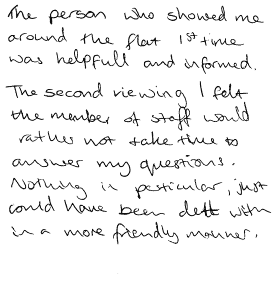 The person who showed me
around the flat 1st time
was helpfull and informed.
The second viewing I felt
the member of staff would
rather not take time to
answer my questions.
Nothing in perticular, just
could have been delt with
in a more friendly manner.